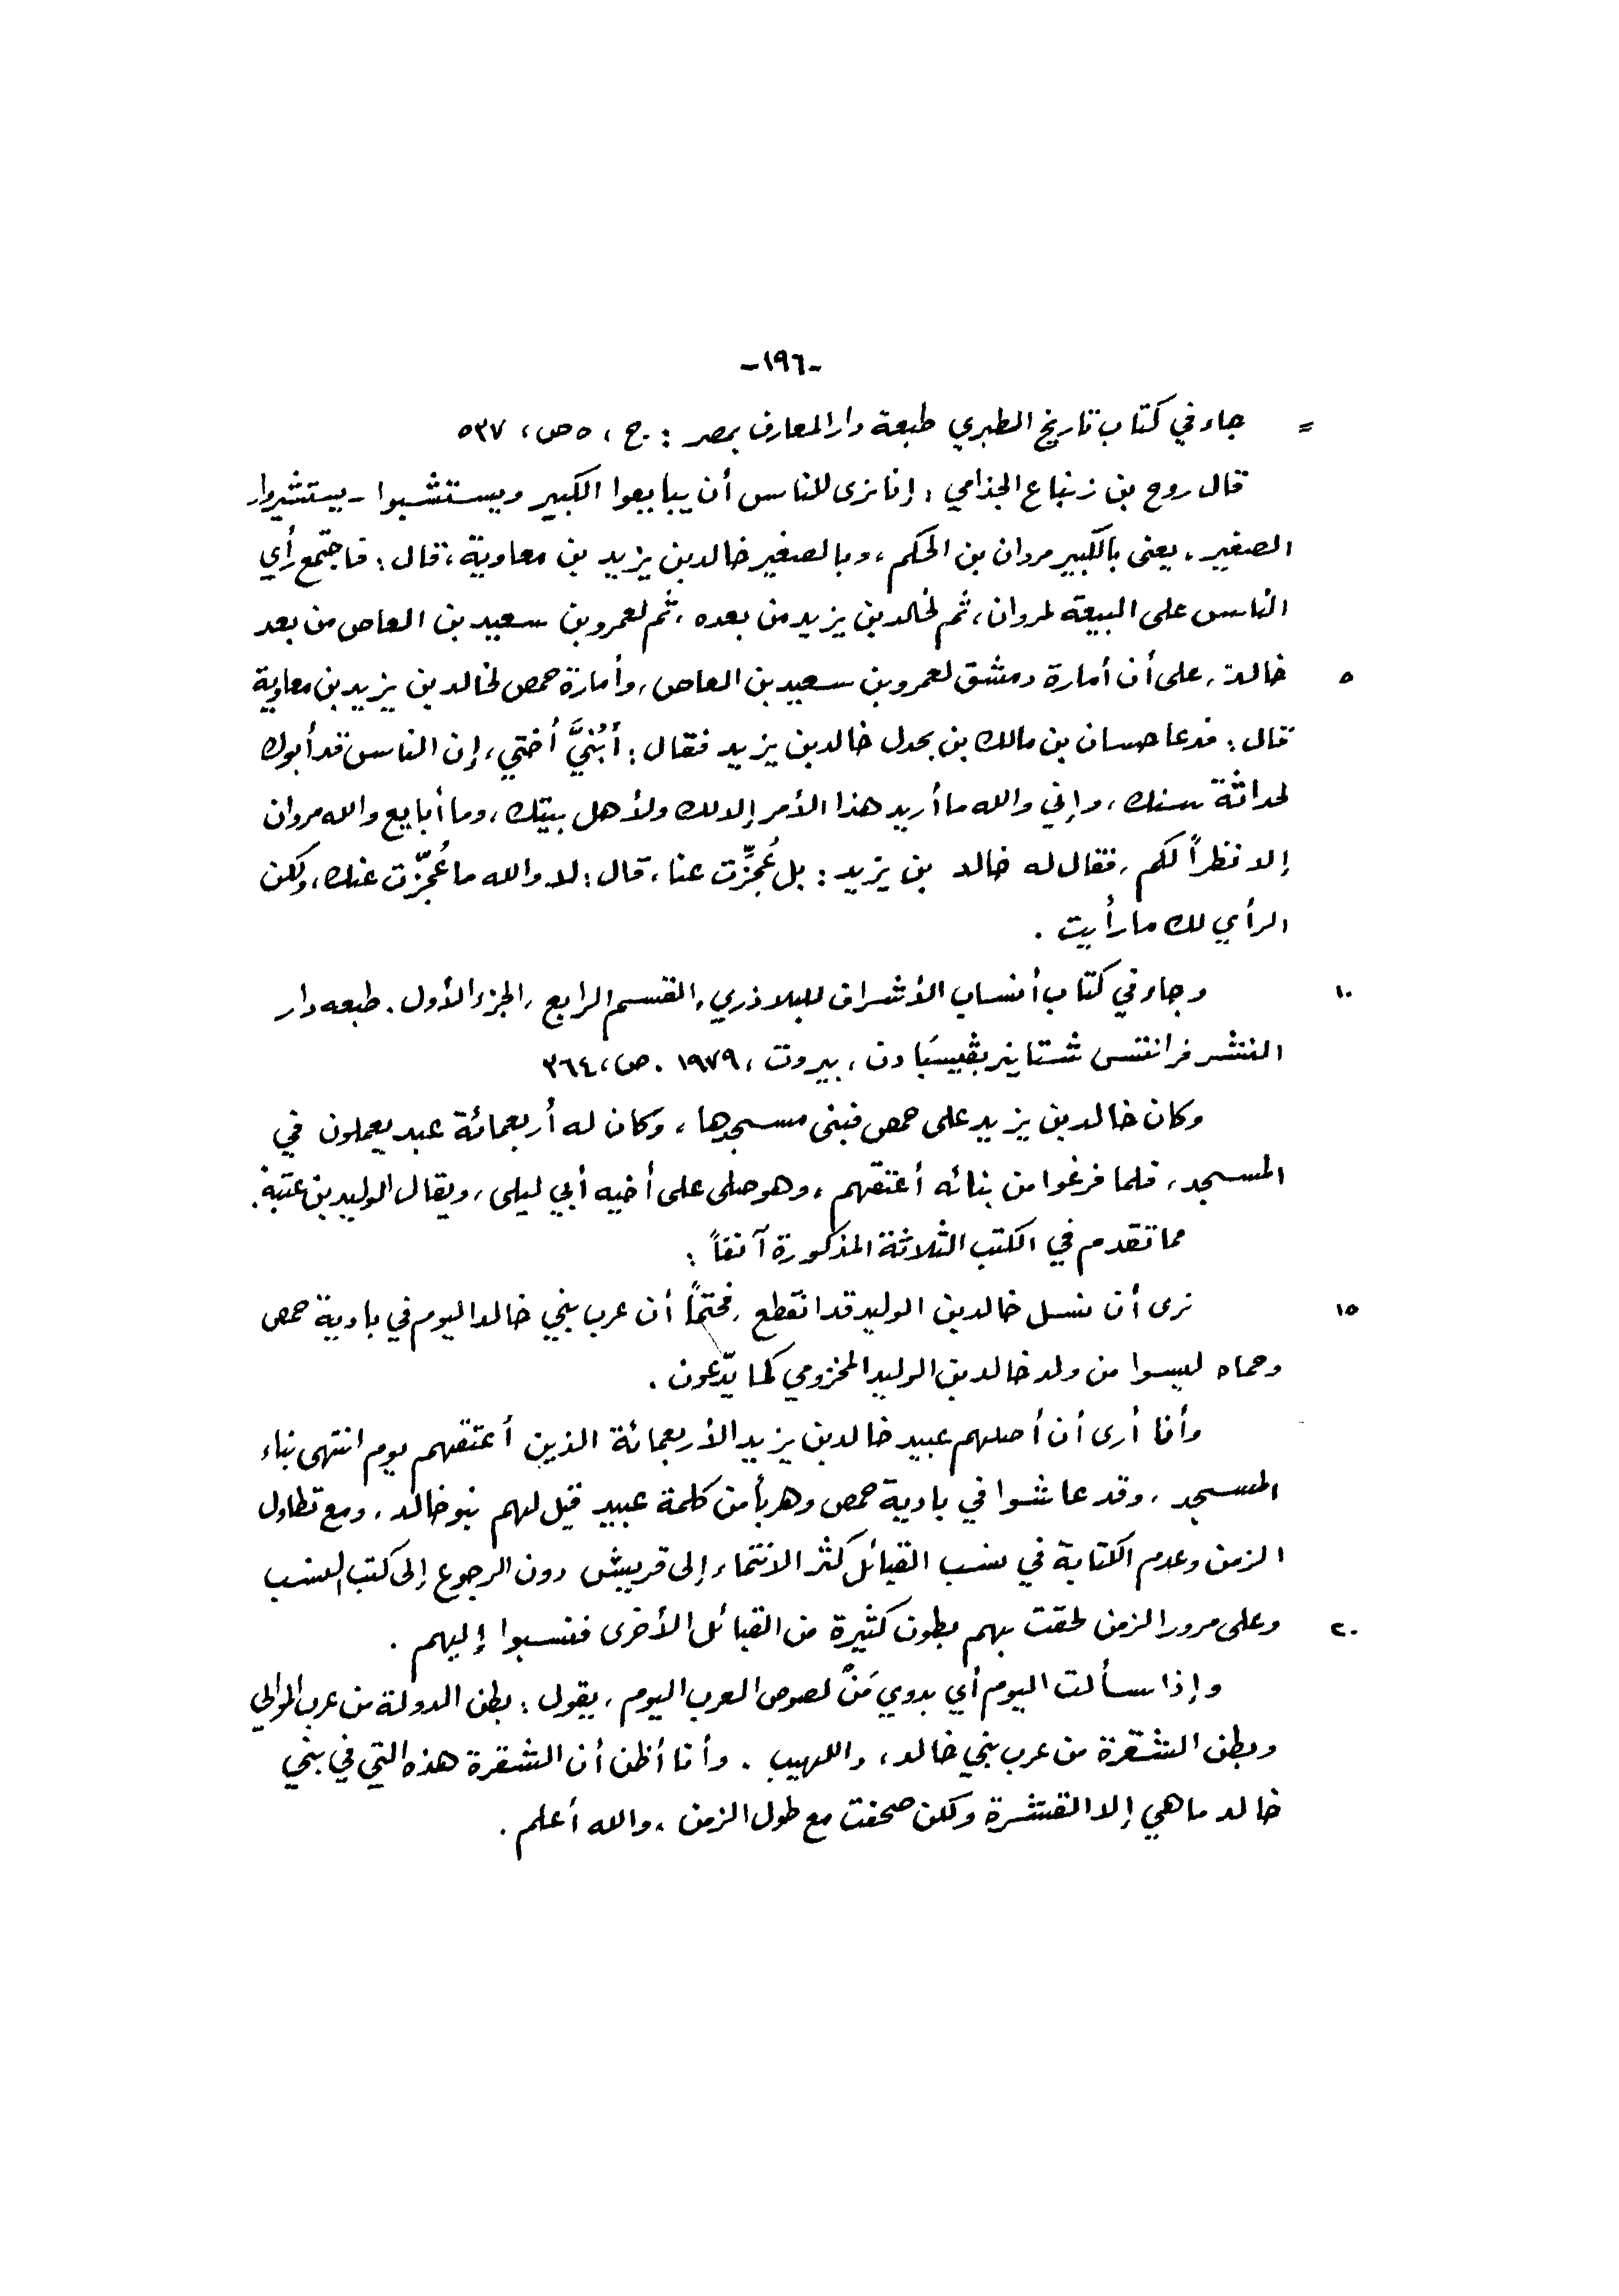 -١٩٦-
= جاء في كتاب تاريخ الطبري طبعة دار المعارف بمصر : ج ، ٥ ص ، ٥٣٧
قال روح بن زنباع الجذامي : إنا نرى للناس أن يبايعوا الكبير ويستشبوا - يستشيروا -
الصغير . يعني بالكبير مروان بن الحكم ، وبالصغير خالد بن يزيد بن معاوية ، قال : فاجتمع رأي
الناس على البيعة لمروان ، ثم لخالد بن يزيد من بعده ، ثم لعمرو بن سعيد بن العاص من بعد
٥ خالد ، على أن أمارة دمشق لعمرو بن سعيد بن العاص ، وأمارة حمص لخالد بن يزيد بن معاوية
قال : فدعا حسان بن مالك بن بحدل خالد بن يزيد فقال : أبُنيَّ أُختي ، إن الناس قد أبوك
لحداثة سنك ، وإني والله ما أريد هذا الأمر إلا لك ولأهل بيتك ، وما أبايع والله مروان
إلا نظراً لكم ، فقال له خالد بن يزيد : بل عُجِّزت عنا ، قال : لا والله ما عُجّزت عنك ، ولكن
الرأي لك ما رأيت .
١٠ وجاء في كتاب أنساب الأشراف للبلاذري ، القسم الرابع ، الجزء الأول . طبعه دار
النشر فرانتس شتاينر بڤيسبَادن ، بيروت ، ١٩٧٩ . ص ، ٣٦٤
وكان خالد بن يزيد على حمص فبنى مسجدها ، وكان له أربعمائة عبد يعملون في
المسجد ، فلما فرغوا من بنائه أعتقهم ، وهو صلى على أخيه أبي ليلى ، ويقال الوليد بن عتبة .
مما تقدم في الكتب الثلاثة المذكورة آنفاً :
١٥ نرى أن نسل خالد بن الوليد قد انقطع ، فحتماً أن عرب بني خالد اليوم في بادية حمص
وحماه ليسوا من ولد خالد بن الوليد المخزومي كما يدّعون .
وأنا أرى أن أصلهم عبيد خالد بن يزيد الأربعمائة الذين أعتقهم يوم انتهى بناء
المسجد ، وقد عاشوا في بادية حمص وهرباً من كلمة عبيد قيل لهم بنو خالد ، ومع تطاول
الزمن وعدم الكتابة في نسب القبائل كثر الانتماء إلى قريش دون الرجوع إلى كتب النسب
٢٠ وعلى مرور الزمن لحقت بهم بطون كثيرة من القبائل الأخرى فنسبوا إليهم .
وإذا سألت اليوم أي بدوي مَنْ لصوص العرب اليوم ، يقول : بطن الدولة من عرب الموالي
وبطن الشقرة من عرب بني خالد ، واللهيب . وأنا أظن أن الشقرة هذه التي في بني
خالد ما هي إلا القشرة ولكن صحفت مع طول الزمن ، والله أعلم .